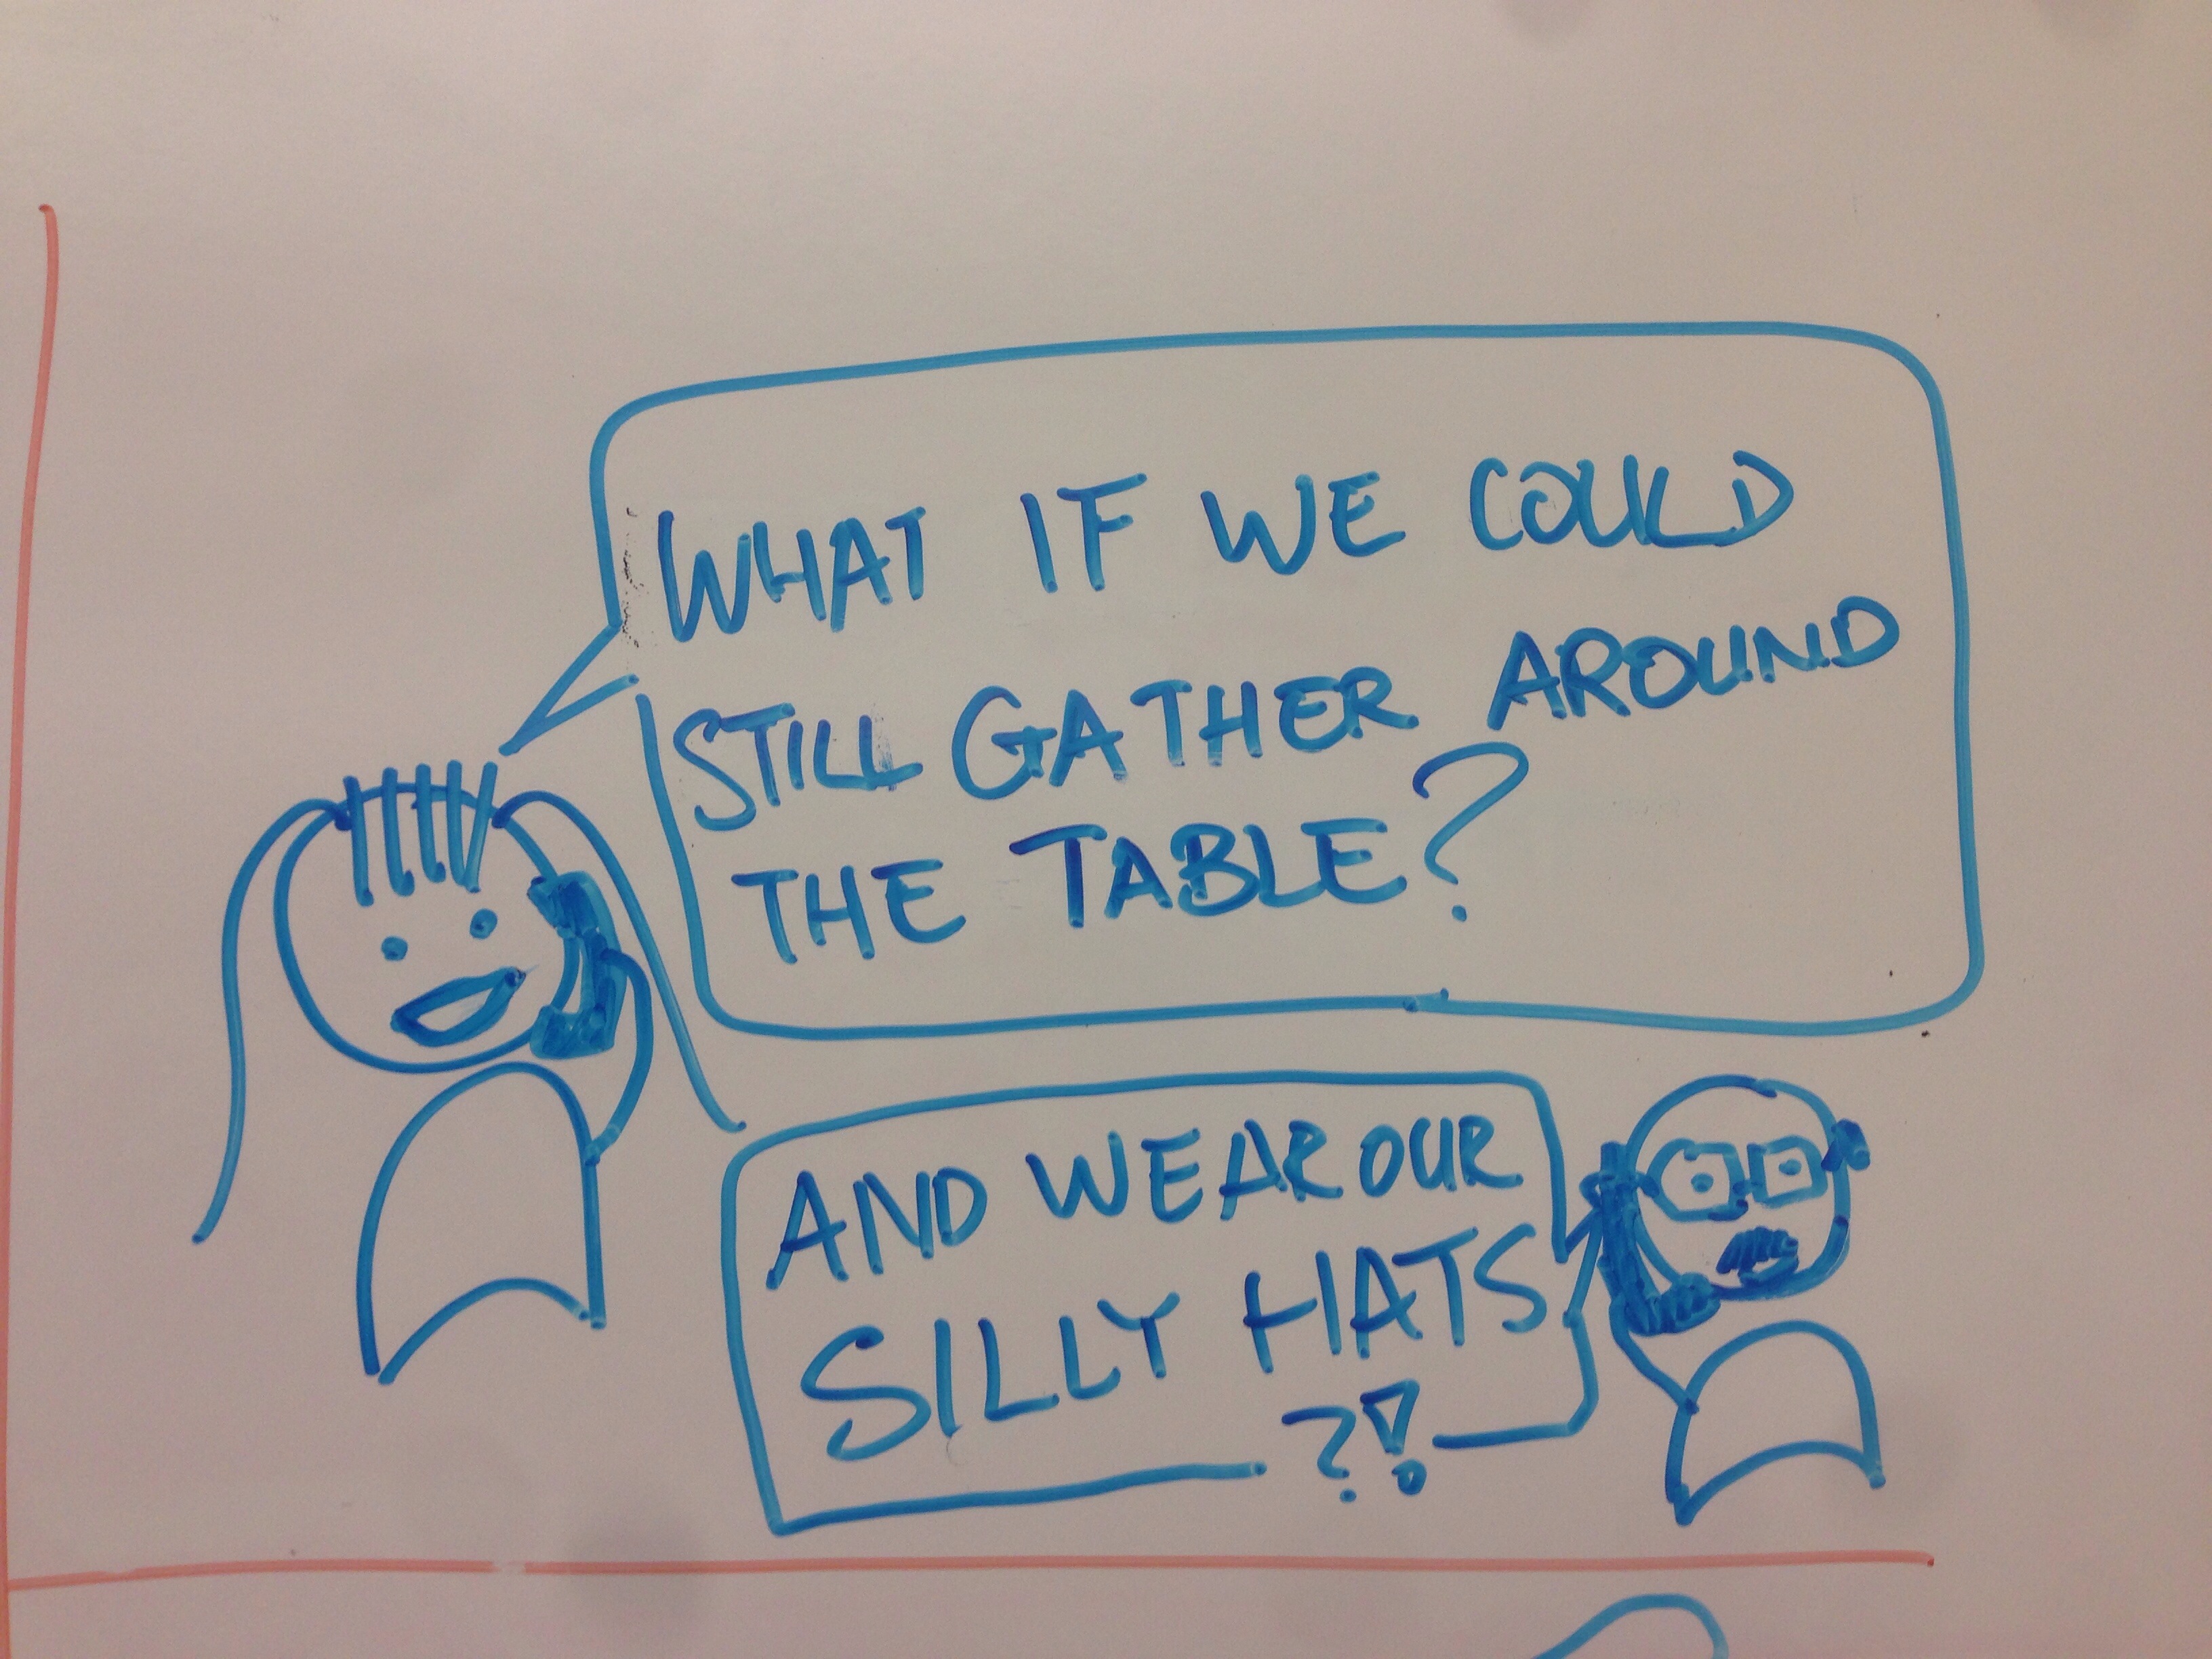 WHAT IF WE COULD
STILL GATHER AROUND
THE TABLE?
AND WEAR OUR
SILLY HATS
?!